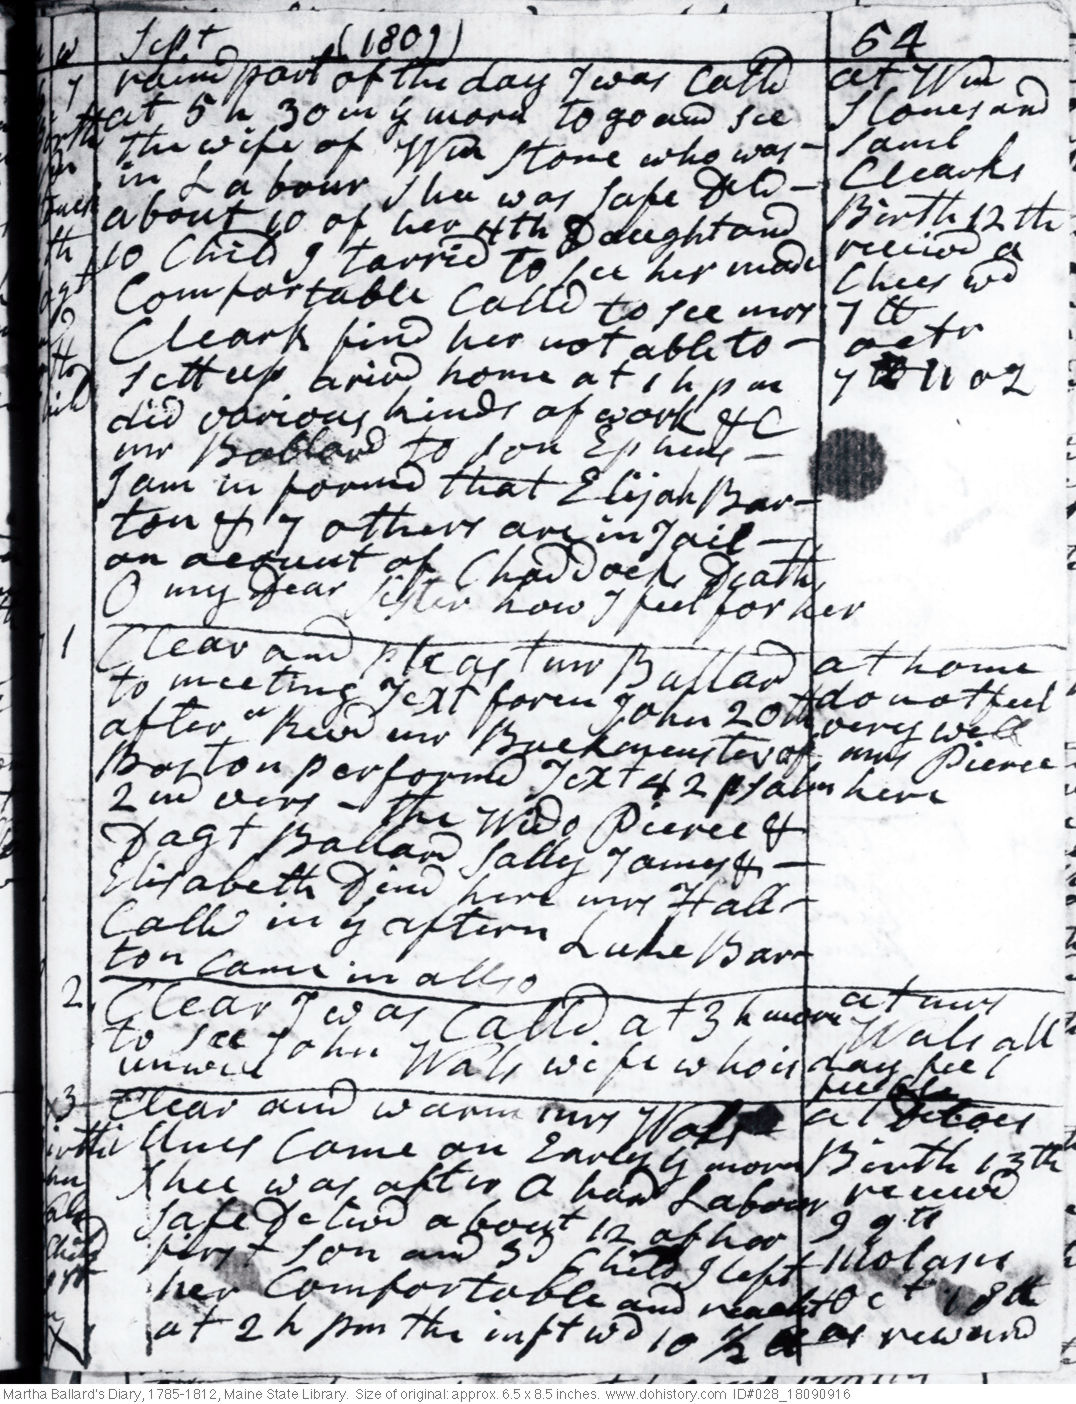 Sept (1809) 54
raind part of the day I was Calld
at 5 h 30 m y morn to go and see
the wife of Wm Stone who was
in Labour Shee was Safe Deld
about 10 of her 4th Daught and
10 Child I tarried to see her made
Comfortable Calld to see mrs
Cleark find her not able to
sett up arivd home at 1 h pm
did various kinds of work &C
mr Ballard to son Ephms
I am informd that Elijah Bar
ton & 7 others are in Jail
on acount of Chaddocks Death
O my Dear Sister how I feel for her
at Wm
Stones and
Saml
Clearks
Birth 12th
receivd a
Chees wd
7 lb
octr
7 11 02
1
Clear and pleast mr Ballard
to meeting Text foren John 20th
after n Revd mr Buckmenster of
Boston performd Text 42 psalm
2nd vers - the Wido Pierce &
Dagt Ballard Sally James &
Elisabeth Dind here mrs Hall
Calld in y aftern Luke Barr
ton came in allso
at home
do not feel
very well
mrs Pierce
here
2
Clear I was Calld at 3 h morn
to see John Wals wife who is
unwell
at mrs
Wals all
day feel
feeble
3
Clear and warm mrs Wals
illnes Came on Early y morn
Shee was after a hard Labour
Safe Delivd about 12 of her
first son and 3d Child I left
her Comfortable and reacht
at 2 h pm the inft wd 10 1/2
at Ditoes
Birth 13th
receivd
9 qts
Molases
Oct 18th
as reward
Martha Ballard's Diary, 1785-1812, Maine State Library. Size of original: approx. 6.5 x 8.5 inches. www.dohistory.com ID#028_18090916